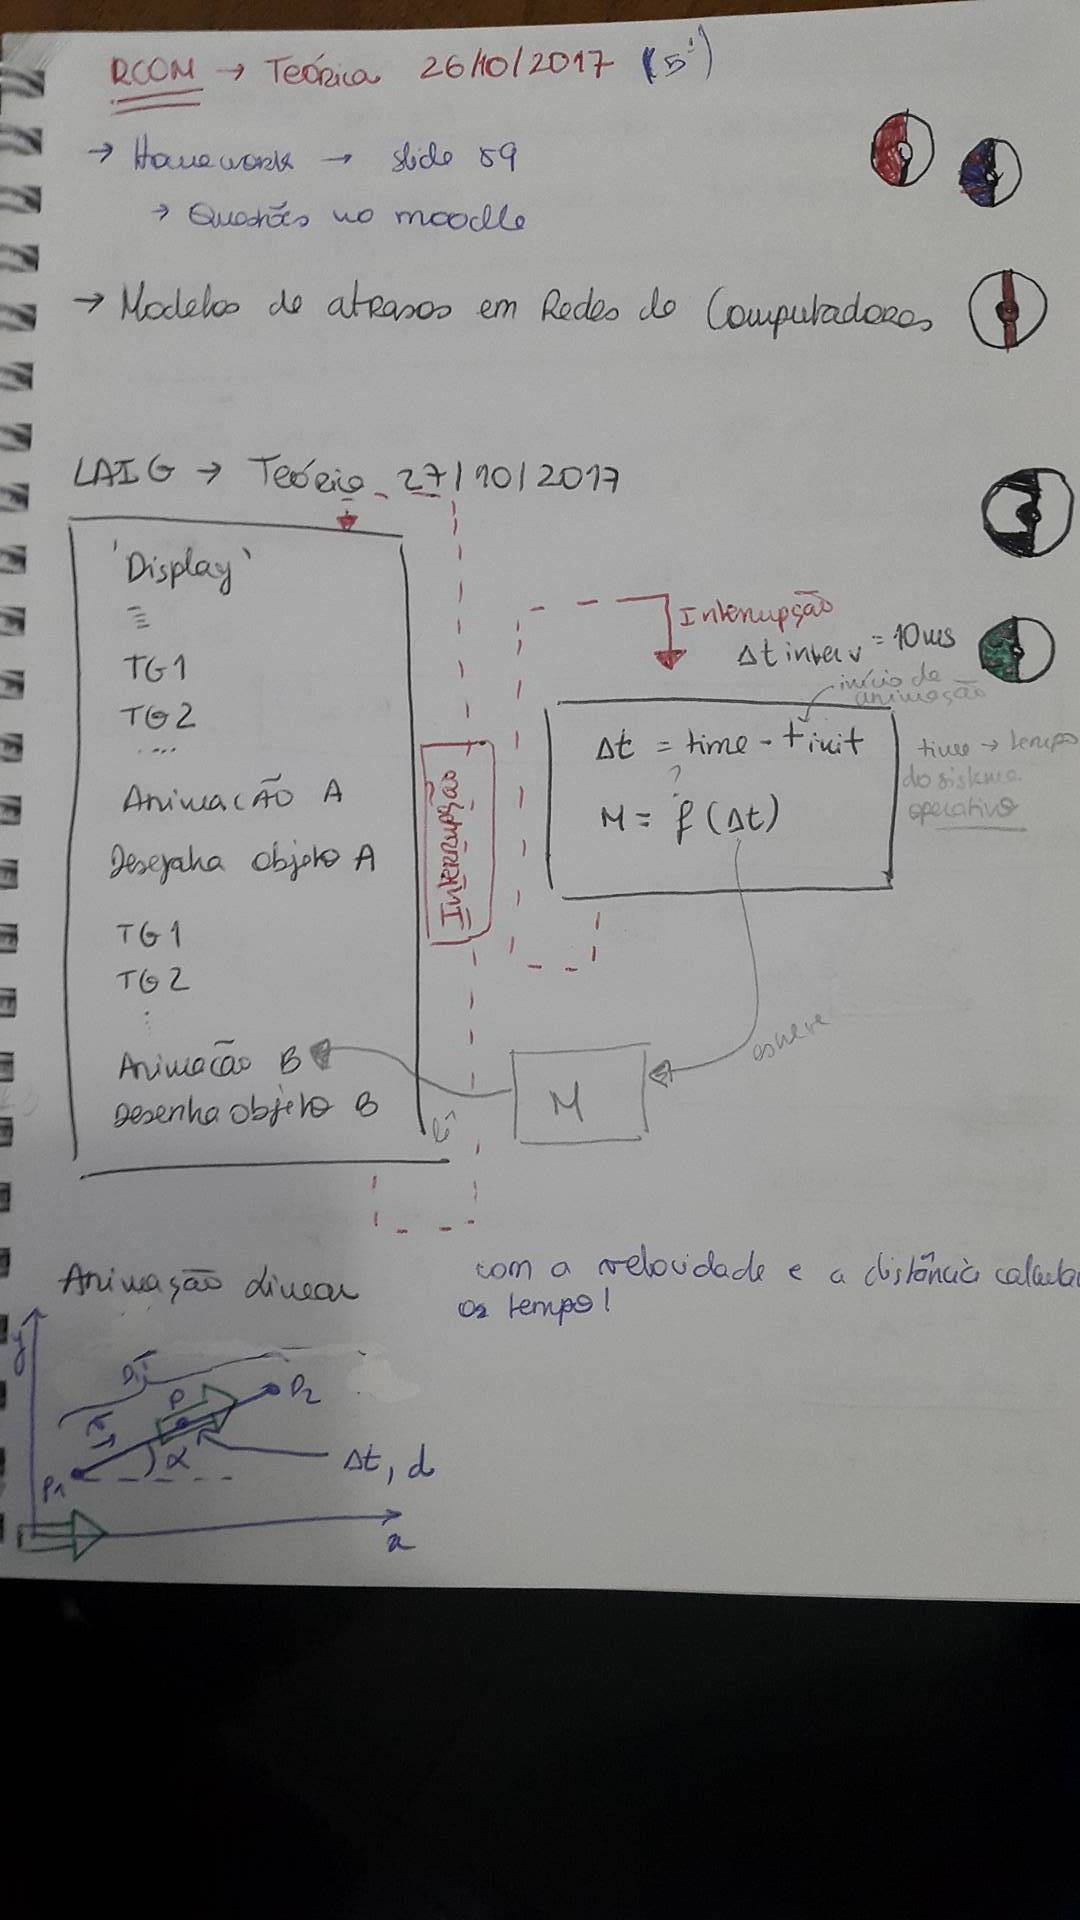 RCOM → Teórica 26/10/2017 (5ª)
→ Homework → slide 59
→ Questões no moodle
→ Modelos de atrasos em Redes de Computadores
LAIG → Teórica 27/10/2017
'Display'
TG1
TG2
....
Animação A
Desenha objeto A
TG1
TG2
⋮
Animação B
Desenha objeto B
Interrupção
Interrupção
Δt interv = 10ms
início da
animação
Δt = time - tinit
?
M = f (Δt)
time → tempo
do sistema
operativo
escreve
M
lê
Animação linear
com a velocidade e a distância calcular
os tempo!
y
P
P2
α
P1
Δt, d
x